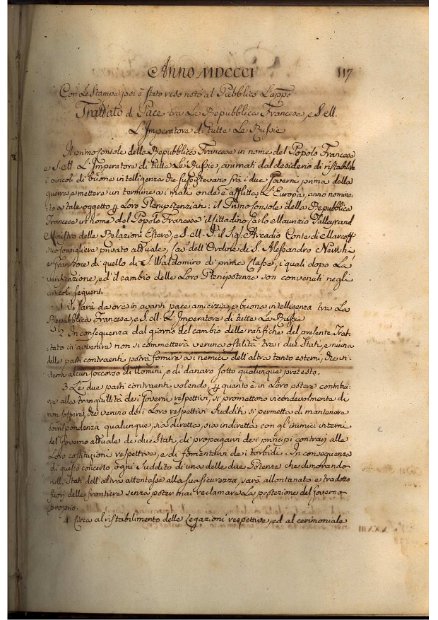 Anno MDCCCI 117
Con le Stampe poi è stato reso noto al Pubblico
Trattato di Pace tra La Repubblica Francese, e S. M.
L'Imperatore di tutte Le Russie
Il primo Console della Repubblica Francese in nome del Popolo Francese
e S. M. L'Imperatore di tutte Le Russie, animati dal desiderio di ristabilire
i vincoli di buona intelligenza che sussistevano fra i due Governi prima della
guerra, e mettere un termine ai mali, onde è afflitta L'Europa, anno nomina
to a tale oggetto i Loro Plenipotenziari: il Primo Console della Repubblica
Francese in nome del Popolo Francese il Cittadino Carlo Maurizio Talleyrand
Ministro delle Relazioni Estere, ed S. M. il Sig. Arcadio Conte de Marcoff
suo Consigliere privato attuale, dell'Ordine di S. Alessandro Newski
e di quello di S. Waldomiro di prima Classe, i quali dopo La
ed il cambio delle Loro Plenipotenze son convenuti negli
1. Vi sarà da ora in avanti pace, amicizia, e buona intelligenza tra La
Repubblica Francese, e S. M. L'Imperatore di tutte Le Russie
2. In conseguenza dal giorno del cambio delle ratifiche del presente Trat
tato in avvenire non si commetterà veruna ostilità tra i due Stati, e niuna
delle parti contraenti potrà fornire ai nemici dell'altra tanto esterni, che in
terni alcun soccorso di Uomini, o di danaro sotto qualunque pretesto.
3. Le due parti contraenti volendo per quanto è in Loro potere contribu
ire alla tranquillità dei Governi rispettivi, si promettono vicendevolmente di
non soffrire che veruno dei Loro rispettivi Sudditi si permetta di mantenere
corrispondenza qualunque, sia diretta, sia indiretta con gl'inimici interni
del Governo attuale di due Stati, di propagarvi dei principi contrari alle
Loro costituzioni rispettive, e di fomentarvi dei torbidi. In conseguenza
di questo concerto ogni Suddito di una delle due Potenze che dimorando
negli Stati dell'altra attentasse alla sua sicurezza, sarà allontanato e tradotto
fuori delle frontiere senza poter mai reclamare La protezione del Governo
proprio.
4. Circa al ristabilimento delle Legazioni respettive, ed al cerimoniale